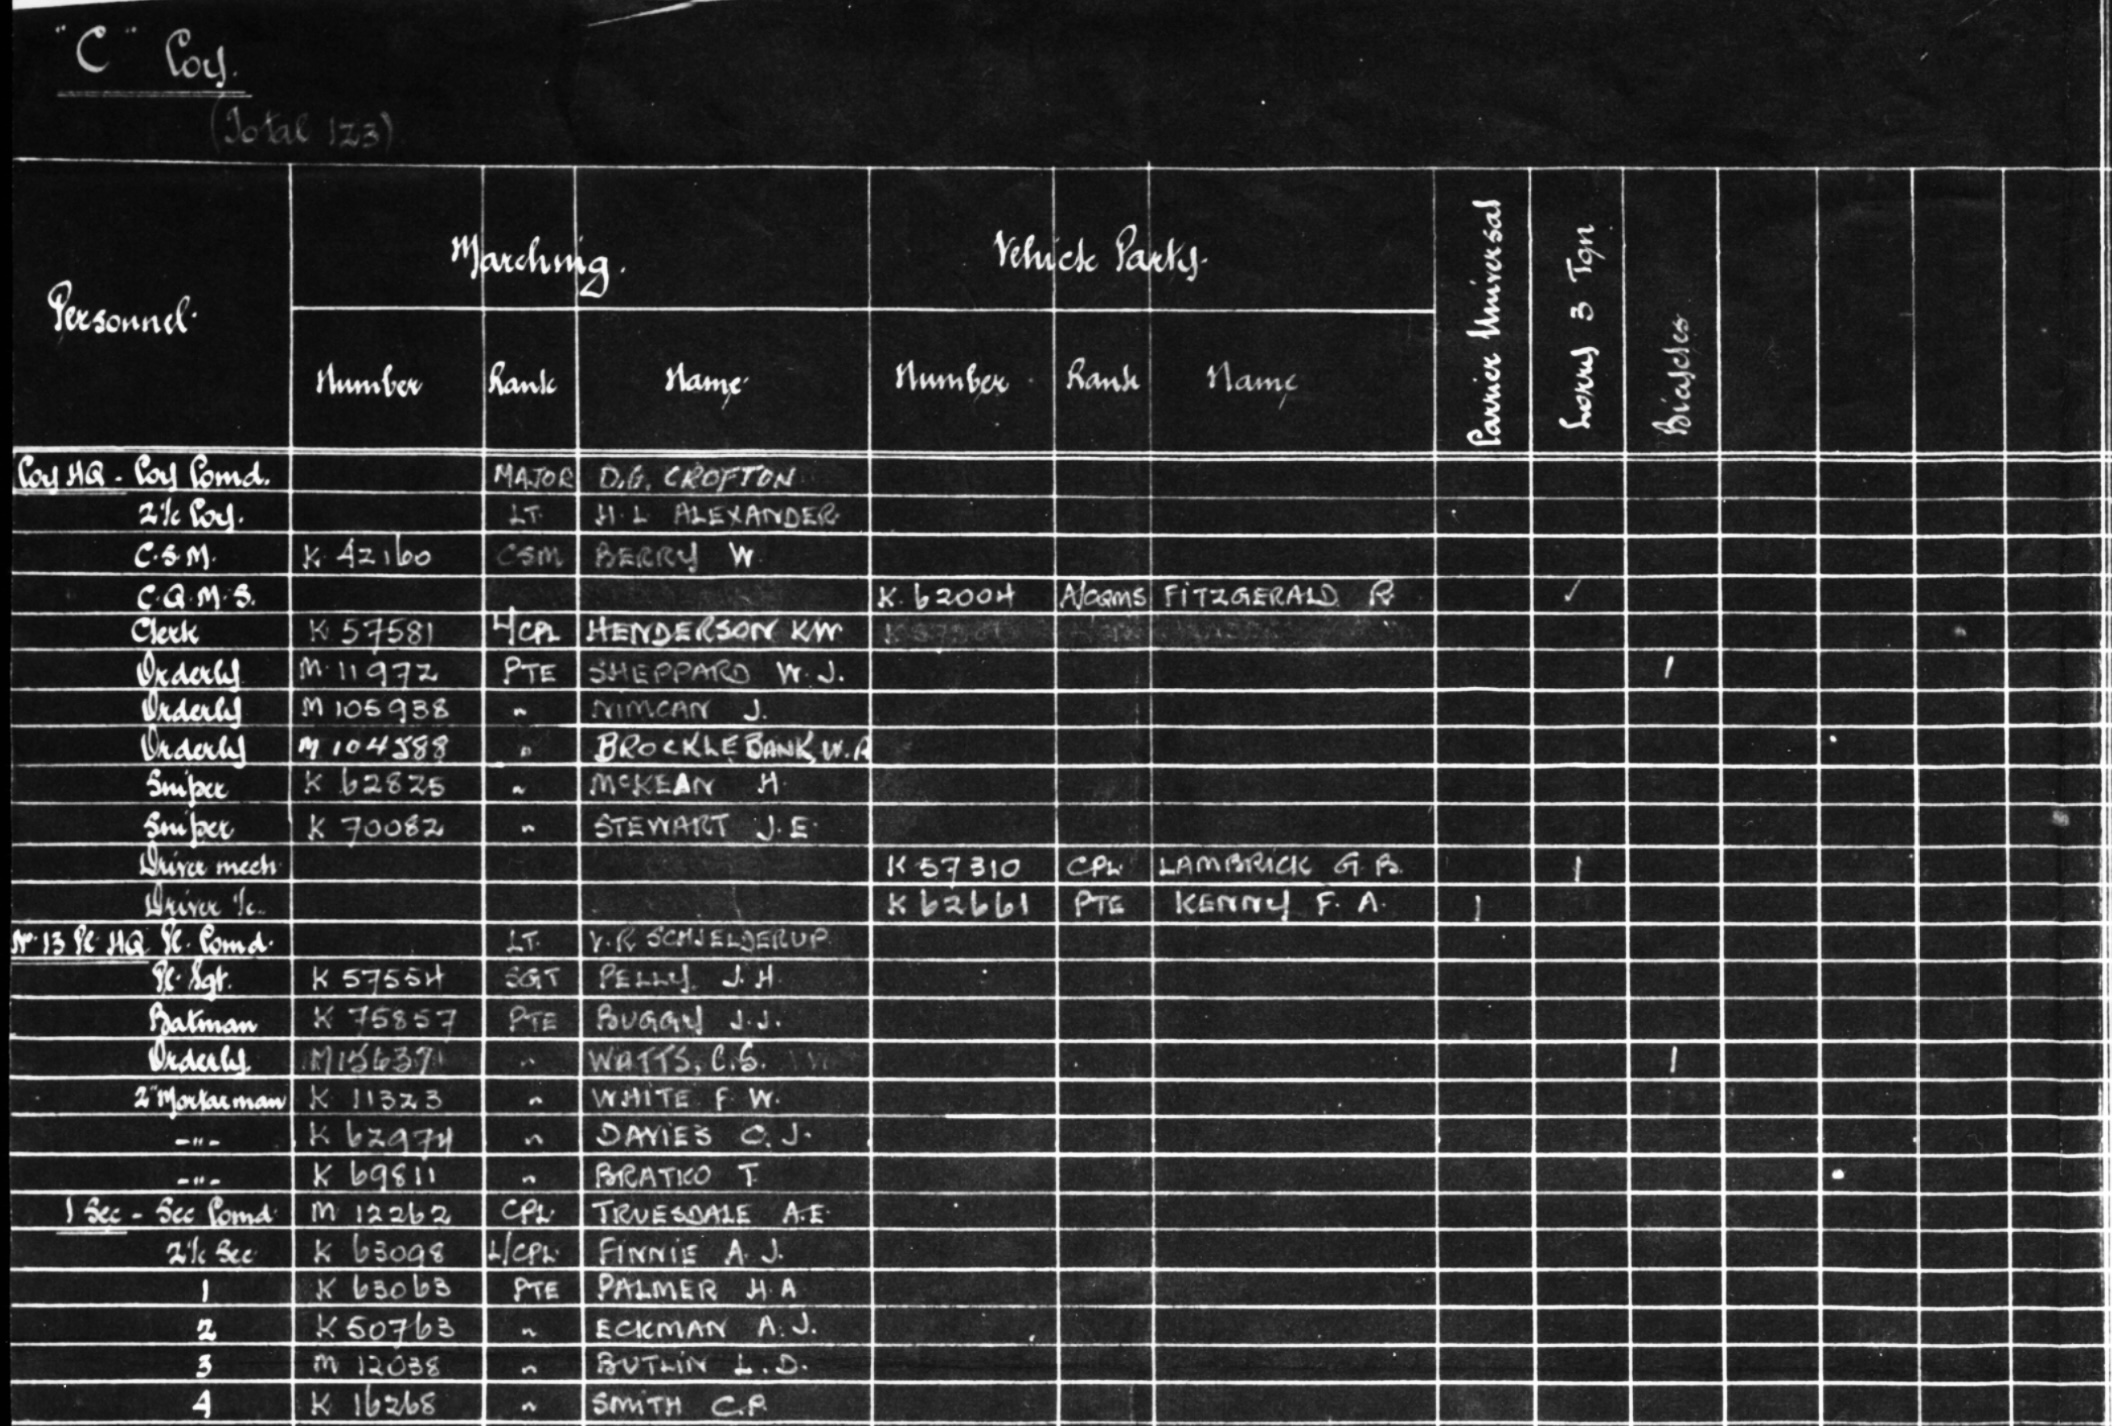 "C" Coy.
(Total 123)
Personnel. Marching. Vehicle Party. Carrier Universal Lorry 3 Ton Bicycles
Number Rank Name Number Rank Name
Coy HQ - Coy Comd. MAJOR D.G. CROFTON
2i/c Coy. LT. H.L. ALEXANDER
C.S.M. K 42160 CSM BERRY W.
C.Q.M.S. K 62004 A/CQMS FITZGERALD R. ✓
Clerk K 57581 L/CPL HENDERSON K.W.
Orderly M 11972 PTE SHEPPARD W.J. 1
Orderly M 105938 " NIMCAN J.
Orderly M 104588 " BROCKLEBANK, W.R
Sniper K 62825 " McKEAN H.
Sniper K 70082 " STEWART J.E.
Driver mech K 57310 CPL LAMBRICK G.B. 1
Driver i/c. K 62661 PTE KENNY F.A. 1
No. 13 Pl. HQ Pl. Comd. LT. V.R. SCHJELDERUP
Pl. Sgt. K 57554 SGT PELLY J.H.
Batman K 75857 PTE BUGGY J.J.
Orderly " WATTS, C.S. 1
2" Mortarman K 11323 " WHITE F.W.
-"- K 62974 " DAVIES C.J.
-"- K 69811 " BRATKO T.
1 Sec - Sec Comd M 12262 CPL TRUESDALE A.E.
2i/c Sec K 63098 L/CPL FINNIE A.J.
1 K 63063 PTE PALMER H.A
2 K 50763 " ECKMAN A.J.
3 M 12038 " BUTLIN L.D.
4 K 16268 " SMITH C.P.